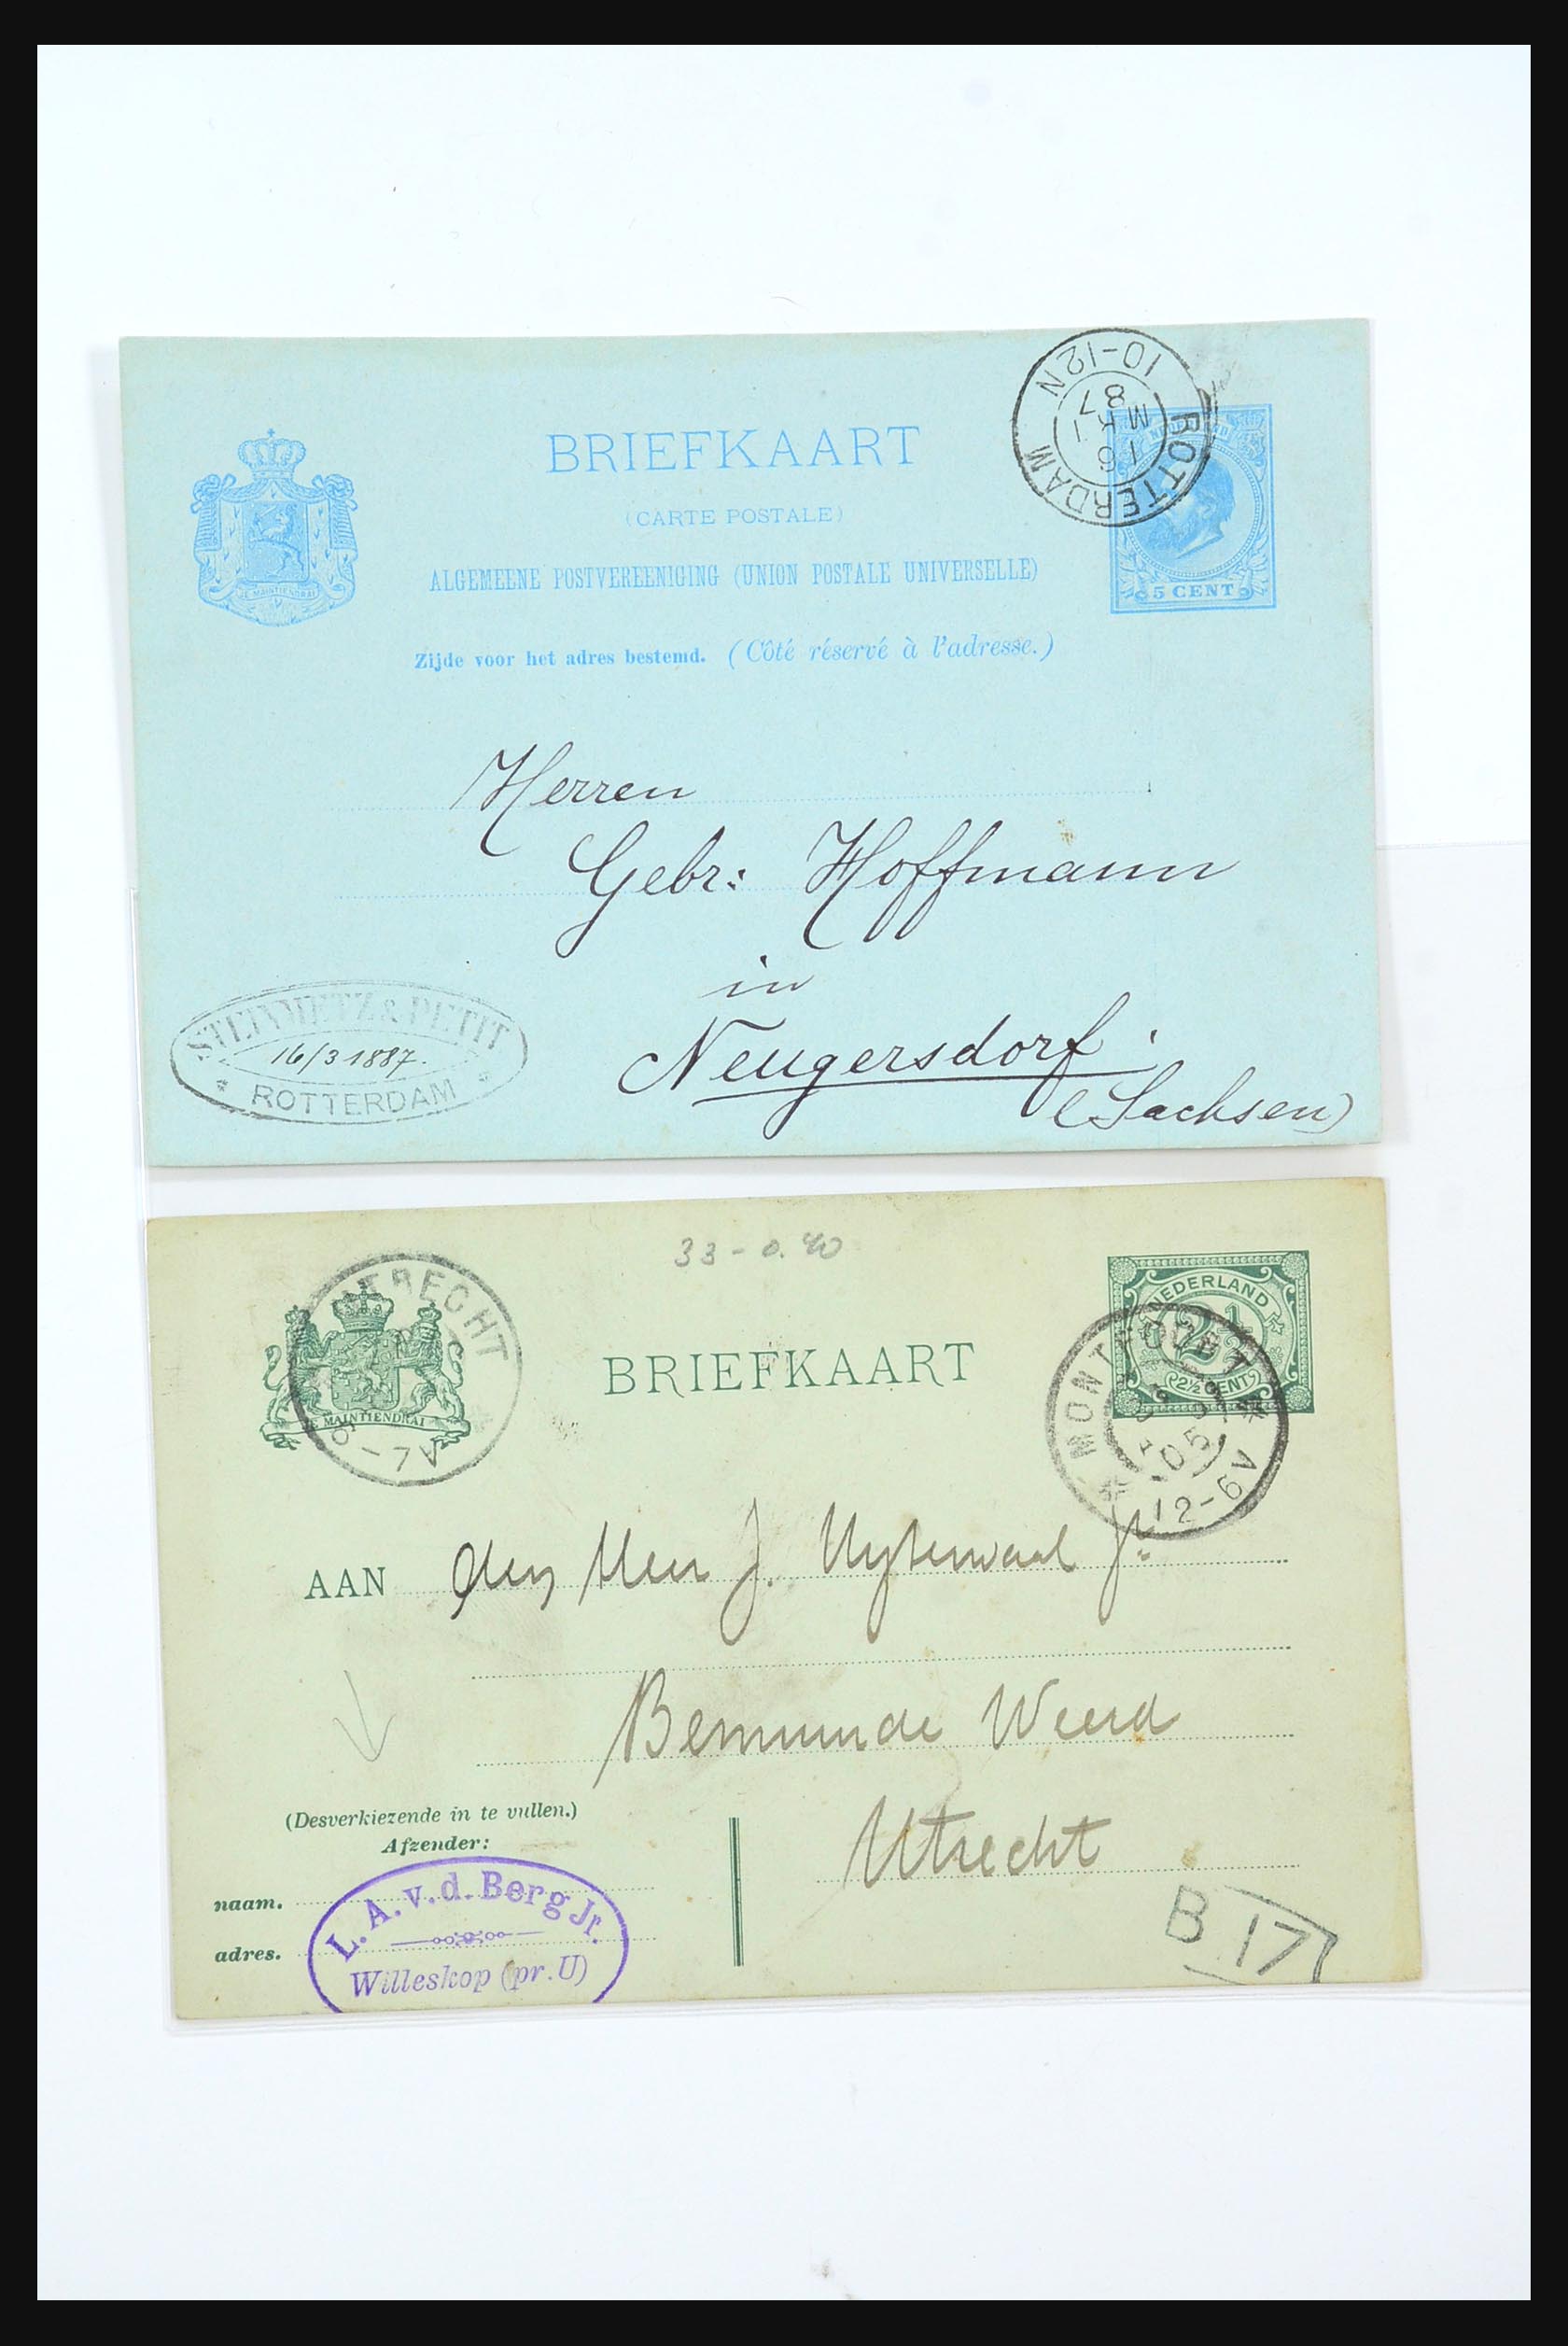 BRIEFKAART
(CARTE POSTALE)
ALGEMEENE POSTVEREENIGING (UNION POSTALE UNIVERSELLE)
Zijde voor het adres bestemd. (Côté réservé à l'adresse.)
JE MAINTIENDRAI
5 CENT
ROTTERDAM
16
87
10-12N
Herren
Gebr: Hoffmann
in
Neugersdorf
(Sachsen)
STEINMETZ & PETIT
16/3 1887.
ROTTERDAM
33-0.40
UTRECHT
6-7V
JE MAINTIENDRAI
BRIEFKAART
NEDERLAND
2½
2½ CENT
MONTFOORT
05
12-6V
AAN den Heer J. Uytenwaal Jr
Bemuurde Weerd
Utrecht
(Desverkiezende in te vullen.)
Afzender:
naam.
adres.
L. A. v. d. Berg Jr.
Willeskop (pr. U)
B 17